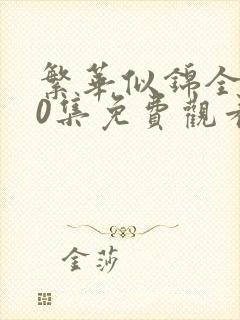 繁華似錦全
0集免費觀看
金莎